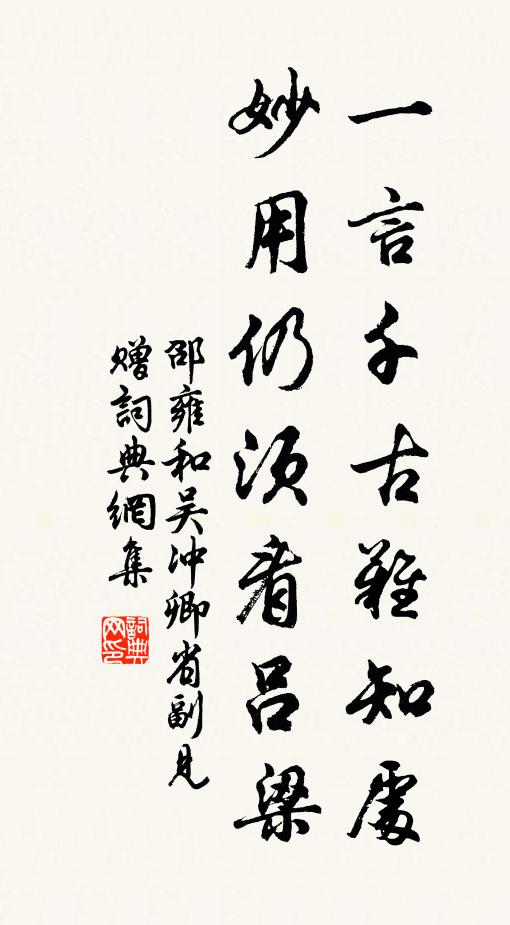 一言千古難知處
妙用仍須看呂梁
邵雍和吴沖卿省副見
贈詞典網集
詞典网印